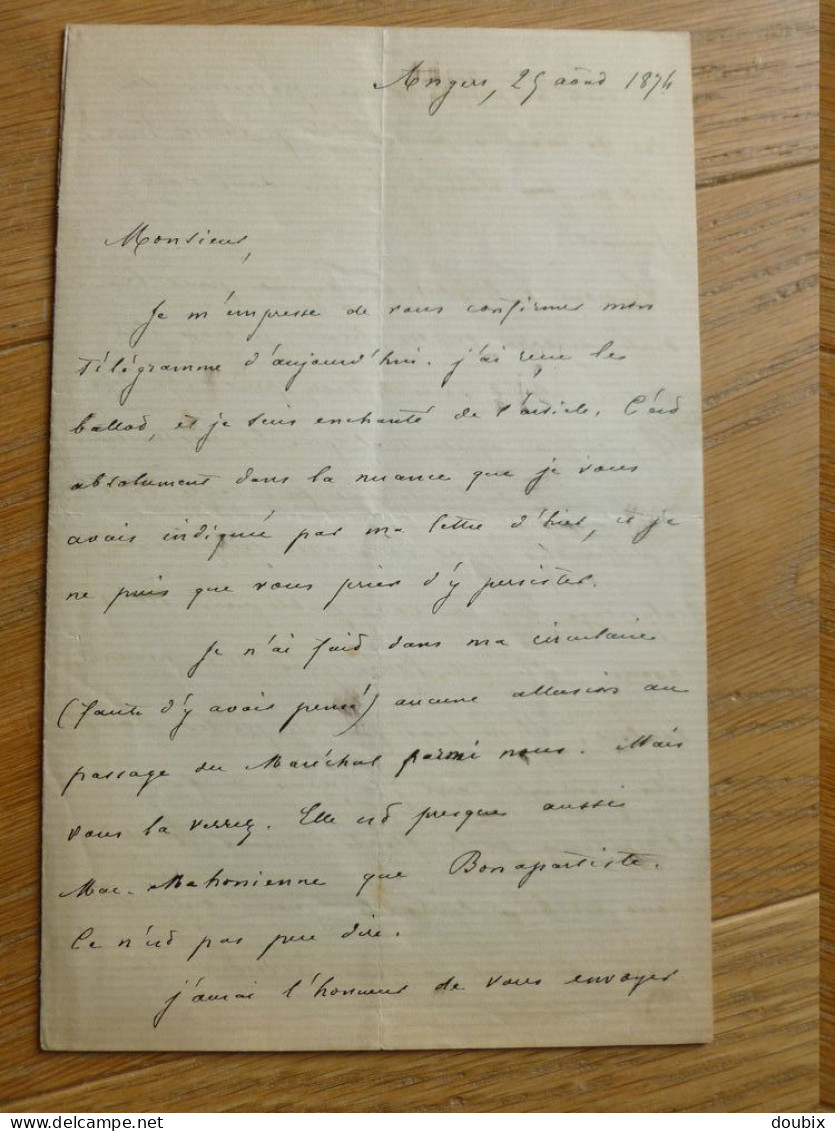 Angers, 25 août 1874
Monsieur,
Je m'empresse de vous confirmer mon
télégramme d'aujourd'hui. J'ai reçu les
ballots, et je suis enchanté de l'article. C'est
absolument dans la nuance que je vous
avais indiquée par ma lettre d'hier, et je
ne puis que vous prier d'y persister.
Je n'ai fait dans ma circulaire
(faute d'y avoir pensé) aucune allusion au
passage du Maréchal parmi nous. Mais
vous la verrez. Elle est presque aussi
Mac-Mahonienne que Bonapartiste.
Ce n'est pas peu dire.
J'aurai l'honneur de vous envoyer
Delcampe.net
doubix